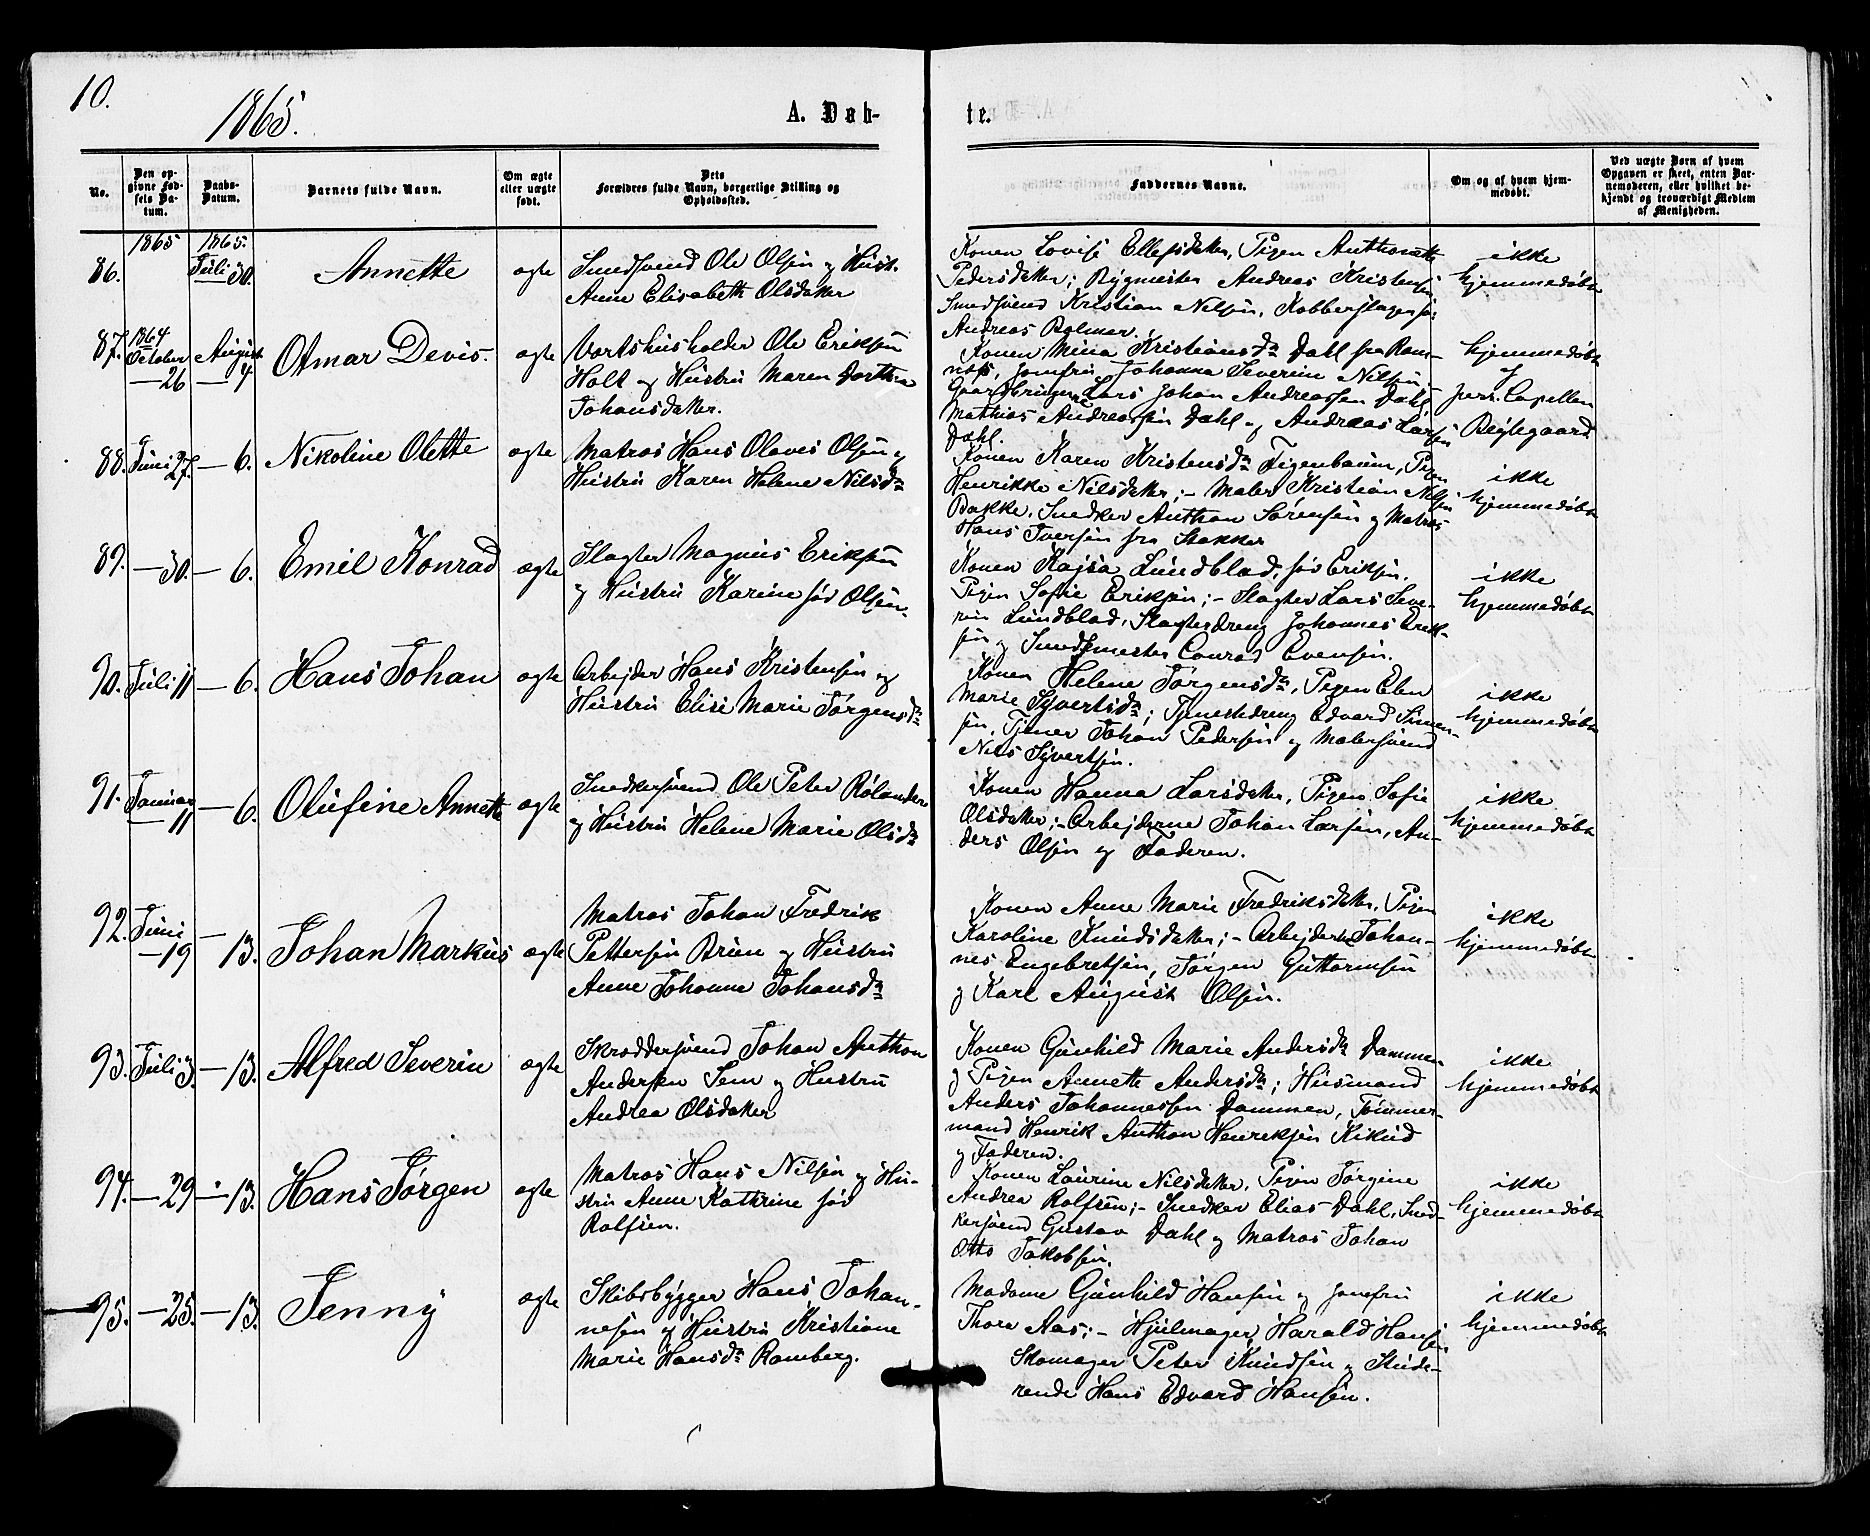 10.
1865.
A. Døb-
te.
No.
Den op-
givne Fød-
sels Da-
tum.
Daabs-
Datum.
Barnets fulde Navn.
Om ægte
eller uægte
født.
Dets
Forældres fulde Navn, borgerlige Stilling og
Opholdssted.
Faddernes Navne.
Om og af hvem hjem-
medøbt.
Ved uægte Børn af hvem
Opgaven er skeet, enten Bar-
nemoderen, eller hvilket be-
kjendt og troværdigt Medlem
af Menigheden.
86.
1865
1865.
Juli 30.
Annette
ægte
Smedsvend Ole Olsen og Hust.
Anne Elisabeth Olsdatter
Konen Lovise Ellefsdatter, Pigen Anthonette
Pedersdatter; Rygmester Andreas Kristensen
Smedsvend Kristian Nilsen, Kobberslager
Andreas Bolmer.
ikke
hjemmedøbt
87.
1864
October
—26
August
—4
Otmar Devis.
ægte
Vertshusholder Ole Eriksen
Holt og Hustru Maren Dorthea
Johansdatter.
Konen Mina Kristiansdr Dahl fra Ram-
næs, Jomfru Johanna Severine Nilsen,
Gaardbruger Lars Johan Andreassen Dahl
Mathias Andreassen Dahl og Andreas Larsen
Dahl.
hjemmedøbt
af
pers. Capellan
Bejlegaard
88.
Juni 27.
— 6.
Nikoline Olette
ægte
Matros Hans Olaves Olsen og
Hustru Karen Helene Nilsdr
Konen Karen Kristensdr Figenbaum, Pigen
Henrikke Nilsdatter;- Maler Kristian Nilsen
Bakke, Snedker Anthon Sørensen og Matros
Hans Iversen fra Stokker
ikke
hjemmedøbt
89.
—30.
— 6.
Emil Konrad
ægte
Slagter Magnus Eriksen
og Hustru Karine fød Olsen.
Konen Kajsa Lundblad, fød Eriksen,
Pigen Sofie Eriksen;- Slagter Lars Seve-
rin Lundblad, Slagterdreng Johannes Erik-
sen og Smedmester Conrad Evensen.
ikke
hjemmedøbt
90.
Juli 11
— 6.
Hans Johan
ægte
Arbejder Hans Kristensen og
Hustru Elise Marie Jørgensdr
Konen Helene Jørgensdr, Pigen Elen
Marie Syvertsdr; Tjenestedreng Edvard Simen-
sen, Tjener Johan Pedersen og Malersvend
Nils Syvertsen.
ikke
hjemmedøbt
91.
Januar
— 11
— 6.
Olufine Annette
ægte
Snedkersvend Ole Peter Rolandsen
og Hustru Helene Marie Olsdr
Konen Hanna Larsdatter, Pigen Sofie
Olsdatter;- Arbejderne Johan Larsen, An-
ders Olsen og Faderen.
ikke
hjemmedøbt
92.
Juni
—19
—
13.
Johan Markus
ægte
Matros Johan Fredrik
Pettersen Bruu og Hustru
Anne Johanne Johansdr
Konen Anne Marie Fredriksdatter, Pigen
Karoline Knudsdatter;- Arbejderne Johan-
nes Engebretsen, Jørgen Guttormsen
og Karl August Olsen.
ikke
hjemmedøbt
93.
Juli 3.
—13.
Alfred Severin
ægte
Skræddersvend Johan Anthon
Andersen Sem og Hustru
Andrea Olsdatter
Konen Gunhild Marie Andersdr Dammen
og Pigen Annette Andersdr; Husmand
Anders Johannessen Dammen, Tømmer-
mand Henrik Anthon Henriksen Kikud
og Faderen.
ikke
hjemmedøbt
94.
—29
—13.
Hans Jørgen
ægte
Matros Hans Nilsen og Hu-
stru Anne Kathrine fød
Rolfsen.
Konen Laurine Nilsdatter, Pigen Jørgine
Andrea Rolfsen;- Snedker Elias Dahl, Sned-
kersvend Gustav Dahl og Matros Johan
Otto Jakobsen.
ikke
hjemmedøbt
95.
—25
—13.
Jenny
ægte
Skibsbygger Hans Johan-
nesen og Hustru Kristiane
Marie Hansdr Ramberg.
Madame Gunhild Hansen og Jomfru
Thora Aas;- Hjulmager Harald Hansen
Skomager Peter Knudsen og Stude-
rende Hans Edvard Hansen.
ikke
hjemmedøbt